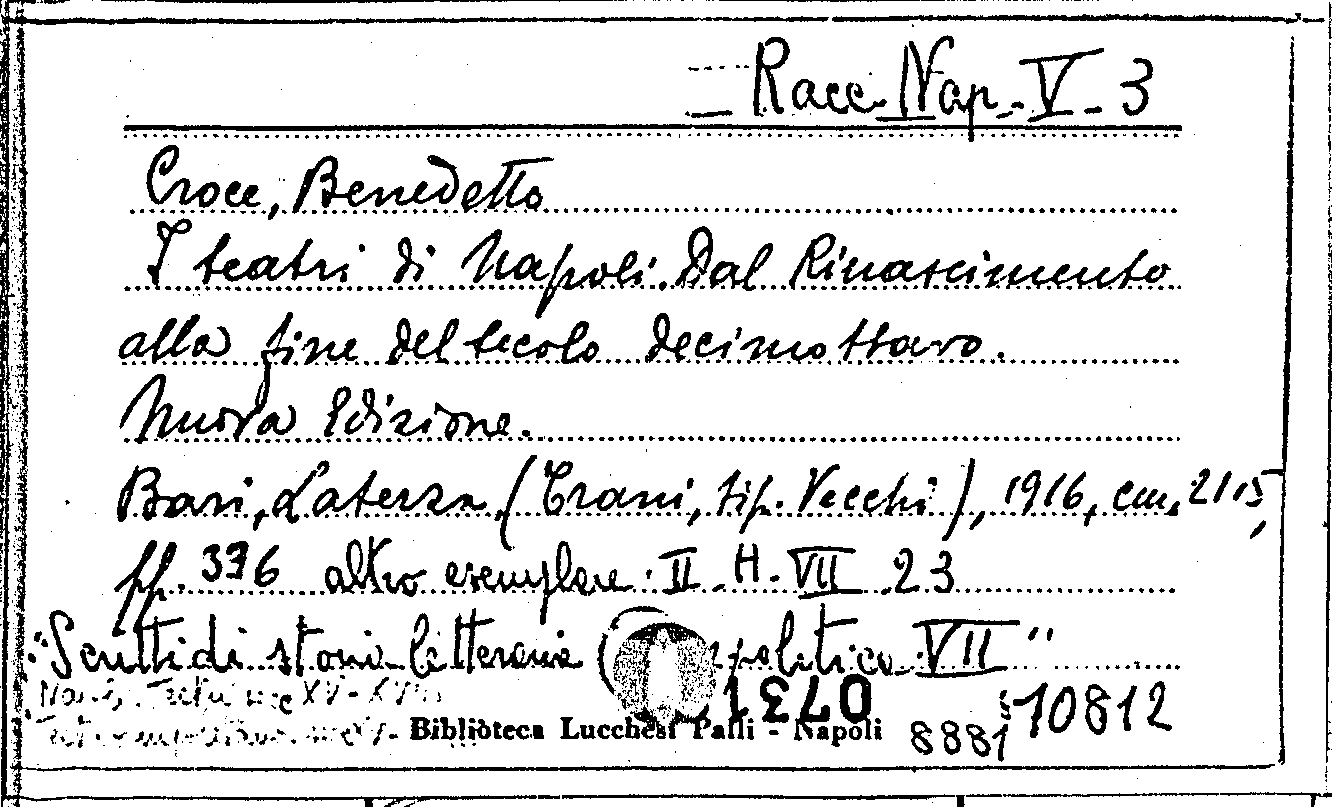 Racc. Nap. V. 3
Croce, Benedetto
I teatri di Napoli. Dal Rinascimento
alla fine del secolo decimottavo.
Nuova Edizione.
Bari, Laterza, (Trani, tip. Vecchi), 1916, cm. 21,5,
pp. 336 altro esemplare. II. H. VII 23
"Scritti di storia letteraria politica VII"
XV - XVIII
0731
Biblioteca Lucchesi Palli - Napoli
8881
10812